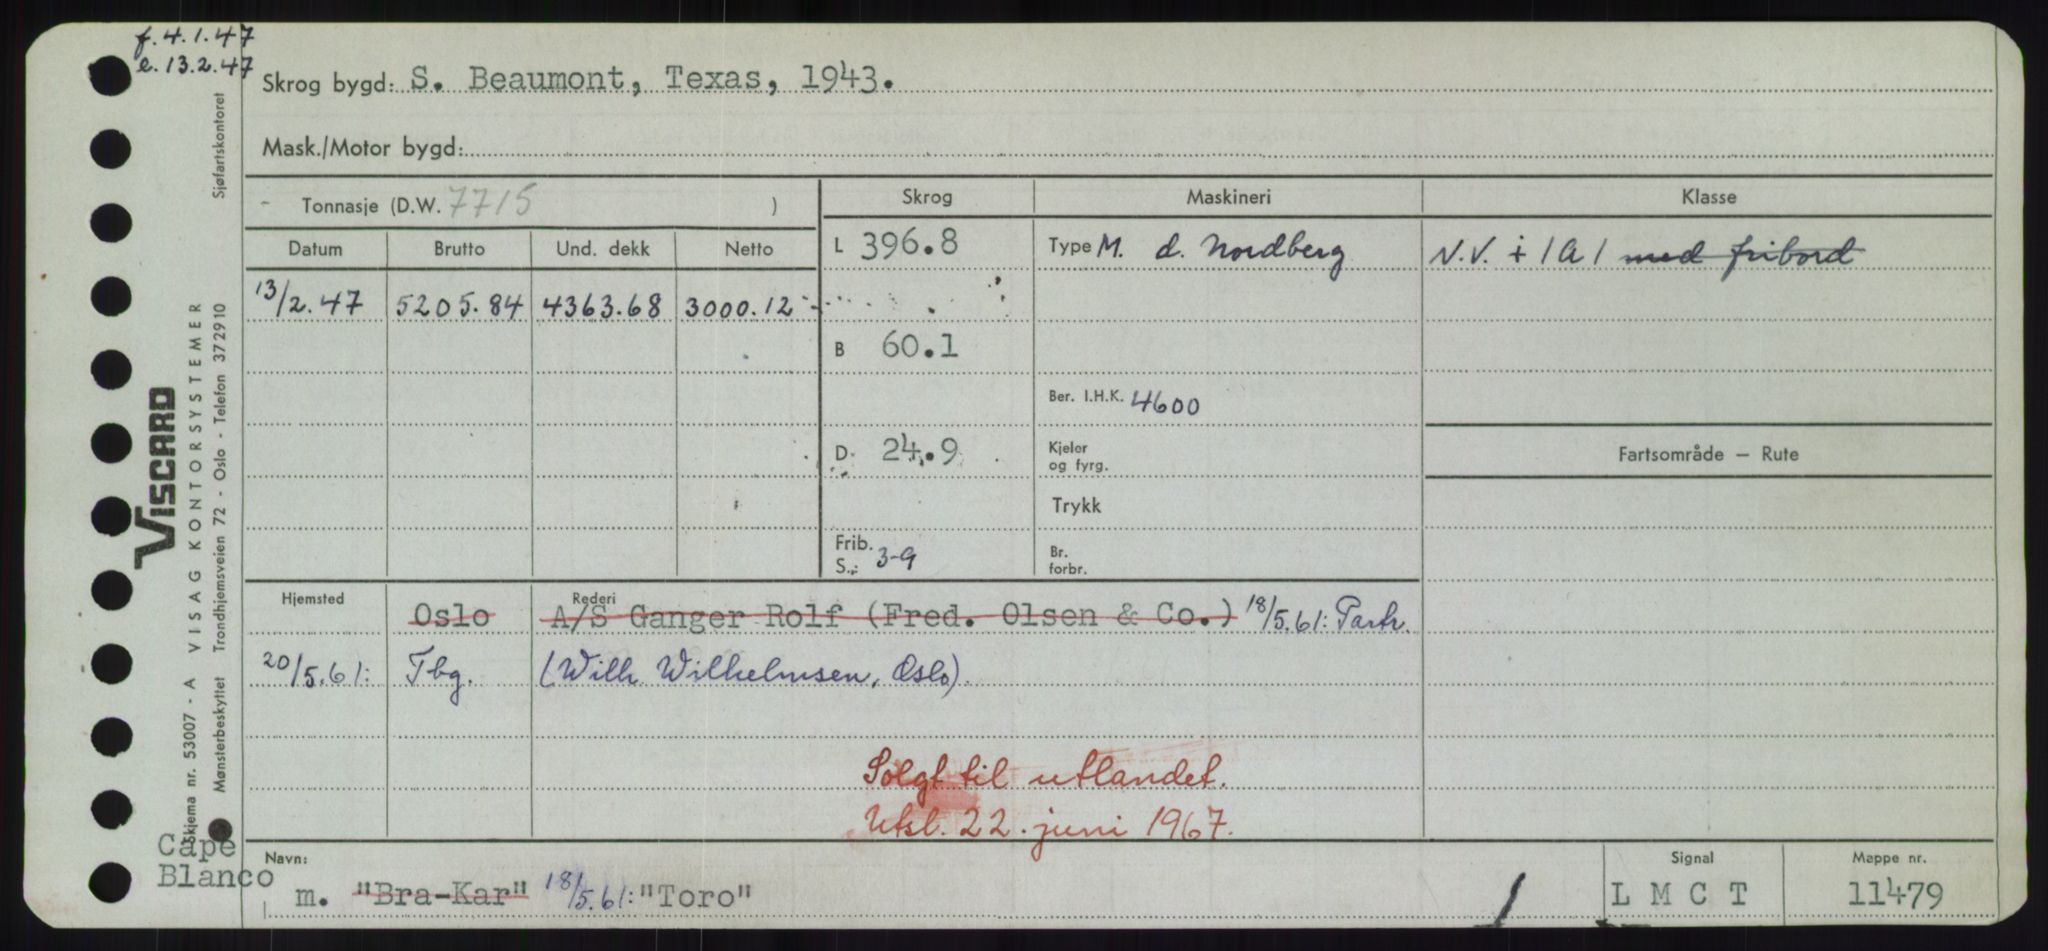 f. 4.1.47
e. 13.2.47
Skrog bygd: S. Beaumont, Texas, 1943.
Mask./Motor bygd:
Tonnasje (D.W. 7715 )
Skrog Maskineri Klasse
Datum Brutto Und. dekk Netto
L 396.8 Type M. d. Nordberg N.V. + 1A1 med fribord
13/2.47 5205.84 4363.68 3000.12
B 60.1
Ber. I.H.K. 4600
D. 24.9 Kjeler og fyrg. Fartsområde – Rute
Trykk
Frib. S.: 3-9 Br. forbr.
Hjemsted Rederi
Oslo A/S Ganger Rolf (Fred. Olsen & Co.) 18/5.61: Partr.
20/5.61: Tbg. (Wilh. Wilhelmsen, Oslo).
Solgt til utlandet.
Utsl. 22. juni 1967.
Cape Blanco
Navn: Signal Mappe nr.
m. "Bra-Kar" 18/5.61: "Toro" L M C T 11479
VISCARD
Skjema nr. 53007 - A VISAG KONTORSYSTEMER
Mønsterbeskyttet Trondhjemsveien 72 - Oslo - Telefon 372910 Sjøfartskontoret